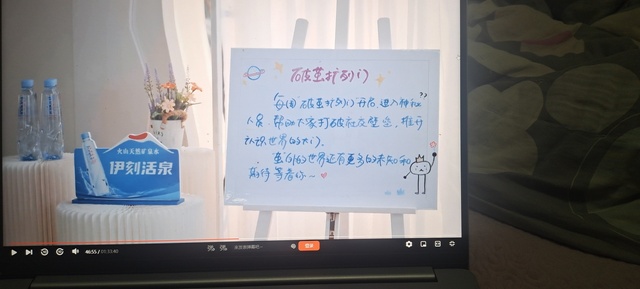 火山天然矿泉水
伊刻活泉
破茧扩列门
每周"破茧扩列门"开启,进入神秘
人员,帮助大家打破社交壁垒,推开
认识世界的大门。
茧们的世界还有更多的未知和
期待等着你~
46:55 / 01:33:40